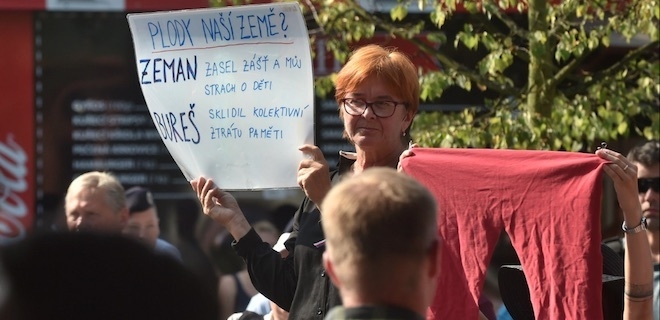 PLODY NAŠÍ ZEMĚ?
ZEMAN ZASEL ZÁŠŤ A MŮJ
STRACH O DĚTI
BUREŠ SKLIDIL KOLEKTIVNÍ
ZTRÁTU PAMĚTI